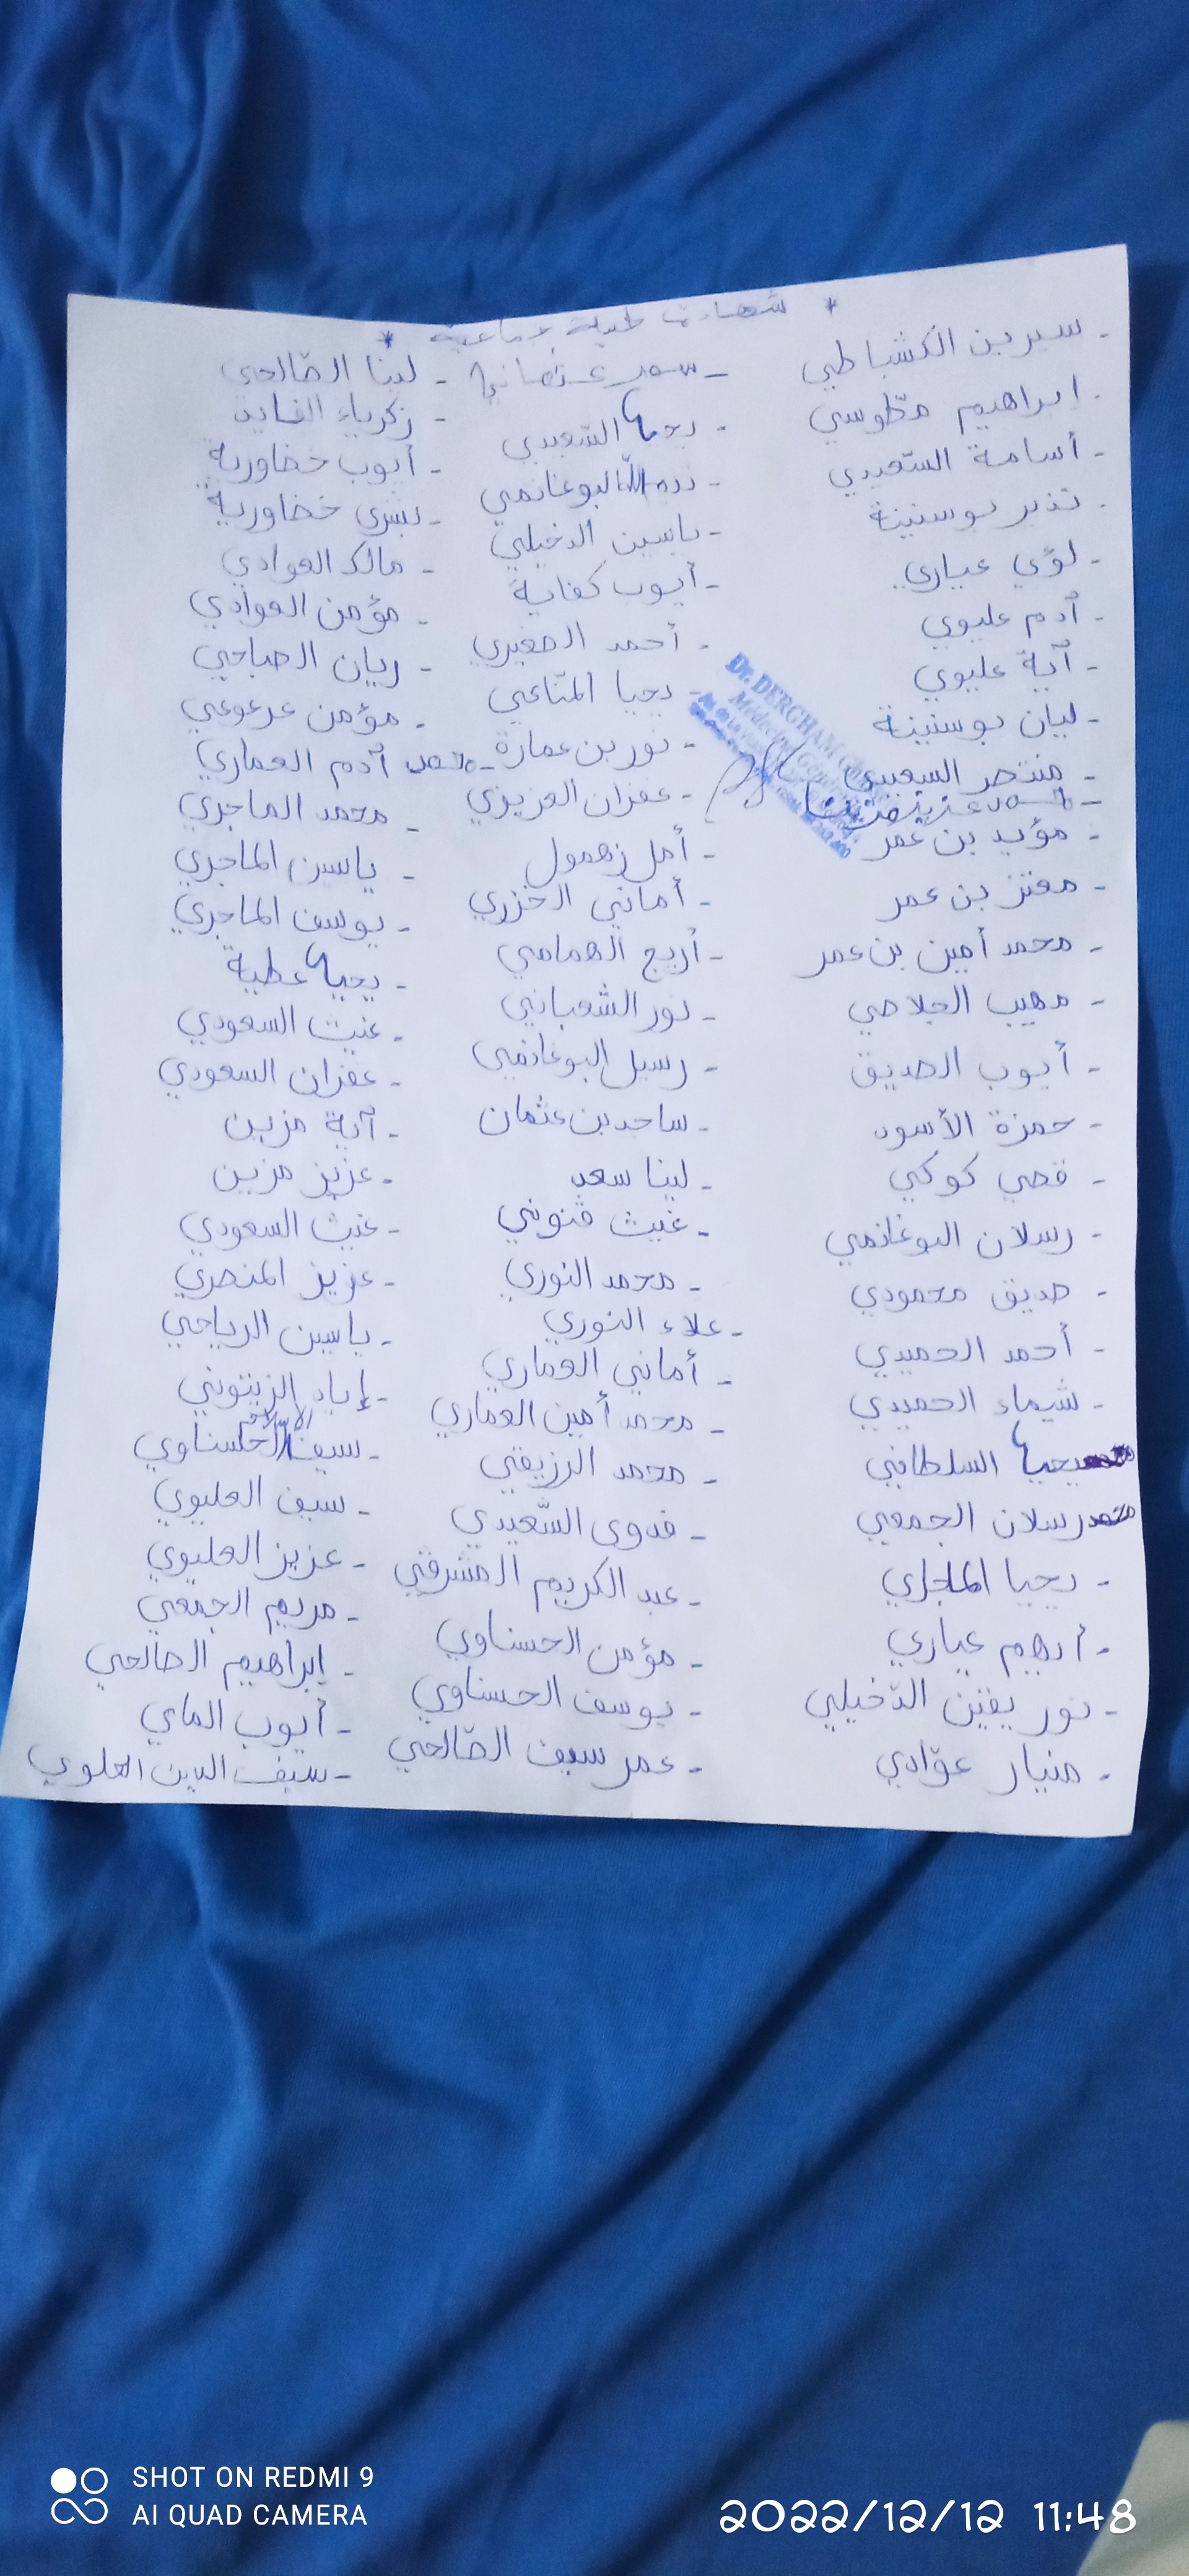 * شهادت طبية جماعية *
- سيرين الكشباطي
- ابراهيم مطوسي
- أسامة السّعيدي
- نذير بوسنينة
- لؤي عياري
- آدم عليوي
- آية عليوي
- ليان بوسنينة
- منتصر السعيدي
- مؤيد بن عمر
- معتز بن عمر
- محمد أمين بن عمر
- مهيب الجلاصي
- أيوب الصديق
- حمزة الأسود
- قصي كوكي
- رسلان البوغانمي
- صديق محمودي
- أحمد الحميدي
- شيماء الحميدي
يحيا السلطاني
محمد رسلان الجمعي
- يحيا الماجري
- أدهم عياري
- نور يقين الدّخيلي
- منيار عوّادي
- سور عثمانية
- يحيا السّعيدي
- البوغانمي
- ياسين الدخيلي
- أيوب كفاية
- أحمد الصغيري
- يحيا المنّاعي
- نور بن عمارة
- غفران العزيزي
- أمل زهمول
- أماني الخزري
- أريج الهمامي
- نور الشعباني
- رسيل البوغانمي
- ساجد بن عثمان
- لينا سعد
- غيث فنوني
- محمد النوري
- علاء النوري
- أماني العماري
- محمد أمين العماري
- محمد الرزيقي
- فدوى السّعيدي
- عبد الكريم المشرقي
- مؤمن الحسناوي
- يوسف الحسناوي
- عمر سيف الصّالحي
- لينا الصّالحي
- زكرياء القايد
- أيوب خضاورية
- بشرى خضاورية
- مالك العوادي
- مؤمن العوادي
- ريان الصباحي
- مؤمن عرعوعي
- محمد آدم العماري
- محمد الماجري
- ياسين الماجري
- يوسف الماجري
- يحيا عطية
- غيث السعودي
- غفران السعودي
- آية مزين
- عزيز مزين
- غيث السعودي
- عزيز المنصري
- ياسين الرياحي
- إياد الزيتوني
- سيف الإسلام الحسناوي
- سيف العليوي
- عزيز العليوي
- مريم الجمعي
- إبراهيم الصالحي
- أيوب الماي
- سيف الدين العلوي
Dr. DERGHAM
SHOT ON REDMI 9
AI QUAD CAMERA
2022/12/12 11:48